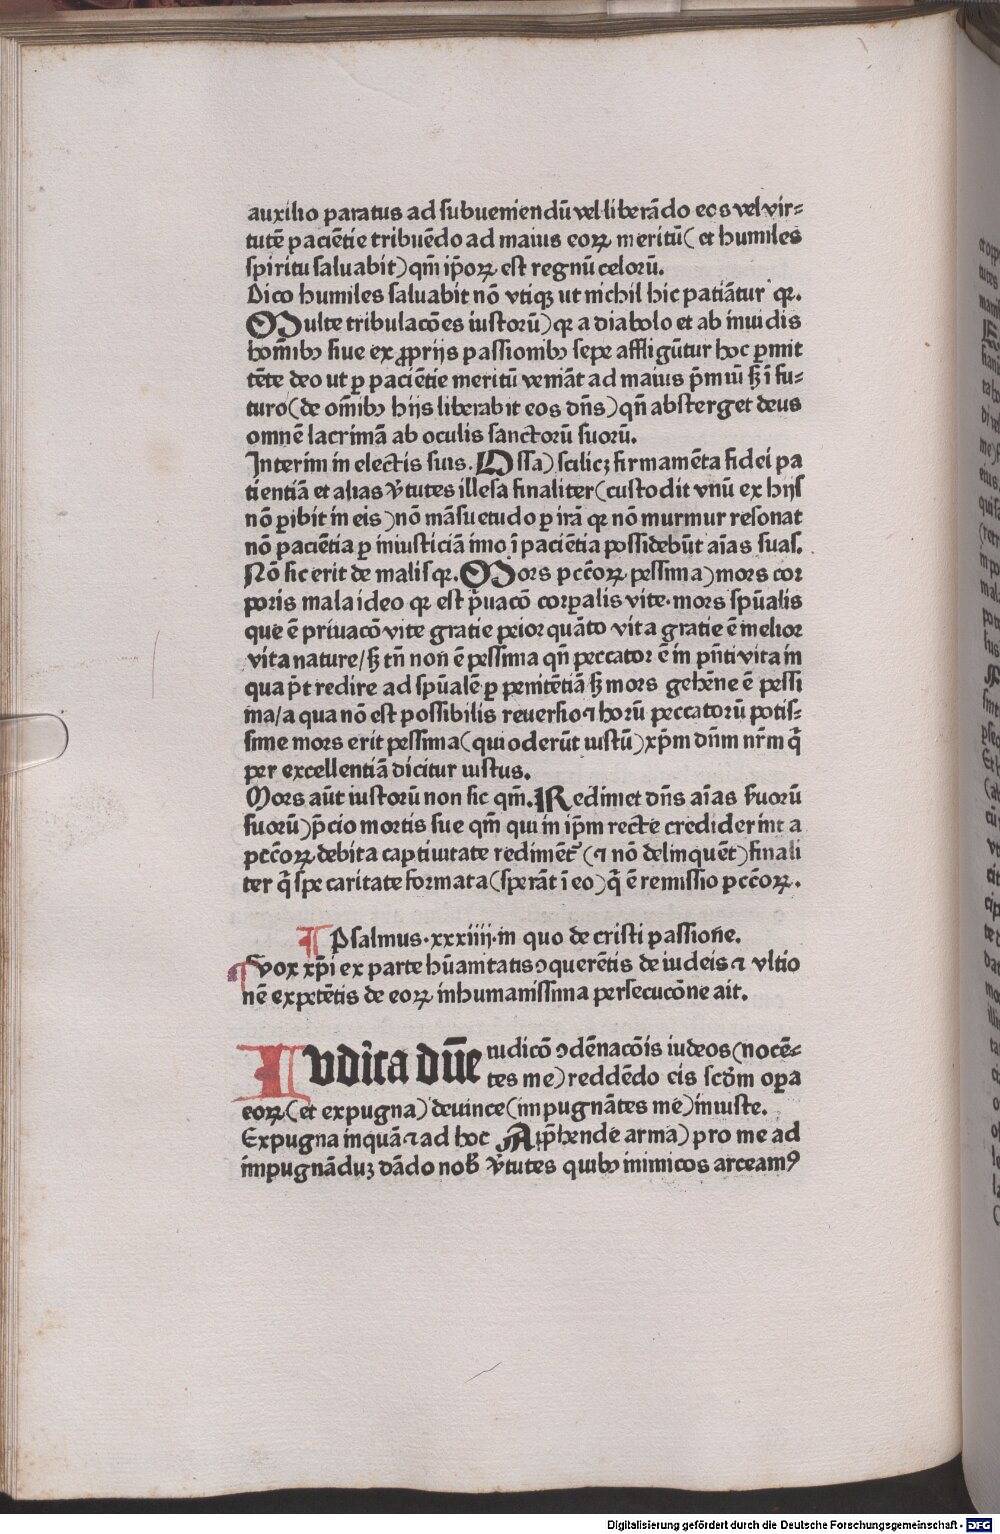 auxilio paratus ad subueniendū vel liberādo eos vel vir⸗
tutē paciētie tribuēdo ad maius eoꝝ meritū( et humiles
spiritu saluabit)qm̄ ip̄oꝝ est regnū celorū.
Dico humiles saluabit nō vtiqꝫ ut nichil hic patiātur qꝛ.
Multe tribulacōes iustorū)qꝛ a diabolo et ab inuidis
hom̄ibꝰ siue ex ꝓprijs passionibꝰ sepe affligūtur hoc ꝑmit
tēte deo ut ꝑ paciētie meritū veniāt ad maius p̄miū sꝫ ī fu⸗
turo(de om̄ibꝰ hijs liberabit eos dn̄s)qn̄ absterget deus
omnē lacrimā ab oculis sanctorū suorū.
Interim in electis suis. Ossa)scilicꝫ firmamēta fidei pa
tientiā et alias v̓tutes illesa finaliter(custodit vnū ex hijs
nō ꝑibit in eis)nō māsuetudo ꝑ irā qꝛ nō murmur resonat
nō paciētia ꝑ iniusticiā imo ī paciētia possidebūt aīas suas.
Nō sic erit de malis qꝛ. Mors pctōꝝ pessima)mors cor
poris mala ideo qꝛ est p̄uacō corꝑalis vite. mors spūalis
que ē priuacō vite gratie peior quāto vita gratie ē melior
vita nature/sꝫ tn̄ non ē pessima qn̄ peccator ē in pn̄ti vita in
qua p̄t redire ad spūalē ꝑ penitētiā sꝫ mors gehēne ē pessi
ma/a qua nō est possibilis reuersio ⁊ horū peccatorū potis⸗
sime mors erit pessima(qui oderūt iustū)xp̄m dn̄m nr̄m q̄
per excellentiā dicitur iustus.
Mors aūt iustorū non sic qm̄. Redimet dn̄s aīas seruorū
suorū)p̄cio mortis sue qm̄ qui in ip̄m recte crediderint a
pctōꝝ debita captiuitate redimēt̉ (⁊ nō delinquēt)finali
ter q̄ spe caritate formata(sperāt ī eo)q̄ ē remissio pctōꝝ.
Psalmus.xxxiiij.in quo de cristi passione.
Vox xp̄i ex parte hūanitatis ꝯquerētis de iudeis ⁊ vltio
nē expetētis de eoꝝ inhumanissima persecucōne ait.
Iudica dn̄e iudicō ꝯdēnacōis iudeos(nocē⸗
tes me)reddēdo eis scd̄m oꝑa
eoꝝ(et expugna)deuince(impugnātes me)iniuste.
Expugna inquā ⁊ ad hoc Apph̄ende arma)pro me ad
impugnāduꝫ dādo nob̄ v̓tutes quibꝰ inimicos arceamꝰ
Digitalisierung gefördert durch die Deutsche Forschungsgemeinschaft - DFG